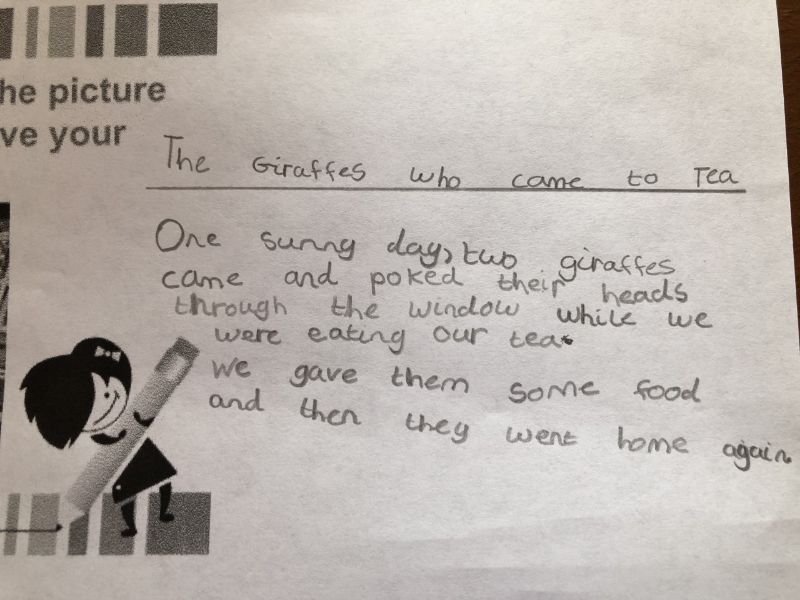 he picture
ve your
The Giraffes who came to Tea
One sunny day, two giraffes
came and poked their heads
through the window while we
were eating our tea.
We gave them some food
and then they went home again.